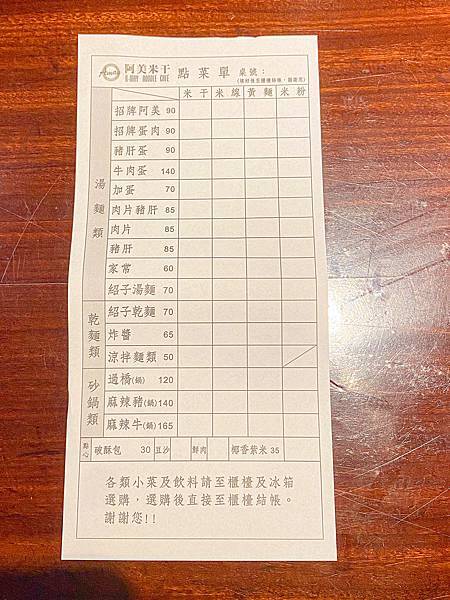 Amay 阿美米干 點菜單 桌號：
A-MAY NOODLE CAFE
米干 米線 黃麵 米粉
湯麵類
招牌阿美 90
招牌蛋肉 90
豬肝蛋 90
牛肉蛋 140
加蛋 70
肉片豬肝 85
肉片 85
豬肝 85
家常 60
紹子湯麵 70
乾麵類
紹子乾麵 70
炸醬 65
涼拌麵類 50
砂鍋類
過橋(鍋) 120
麻辣豬(鍋) 140
麻辣牛(鍋) 165
點心 破酥包 30 豆沙 鮮肉 椰香紫米 35
各類小菜及飲料請至櫃檯及冰箱
選購，選購後直接至櫃檯結帳。
謝謝您!!